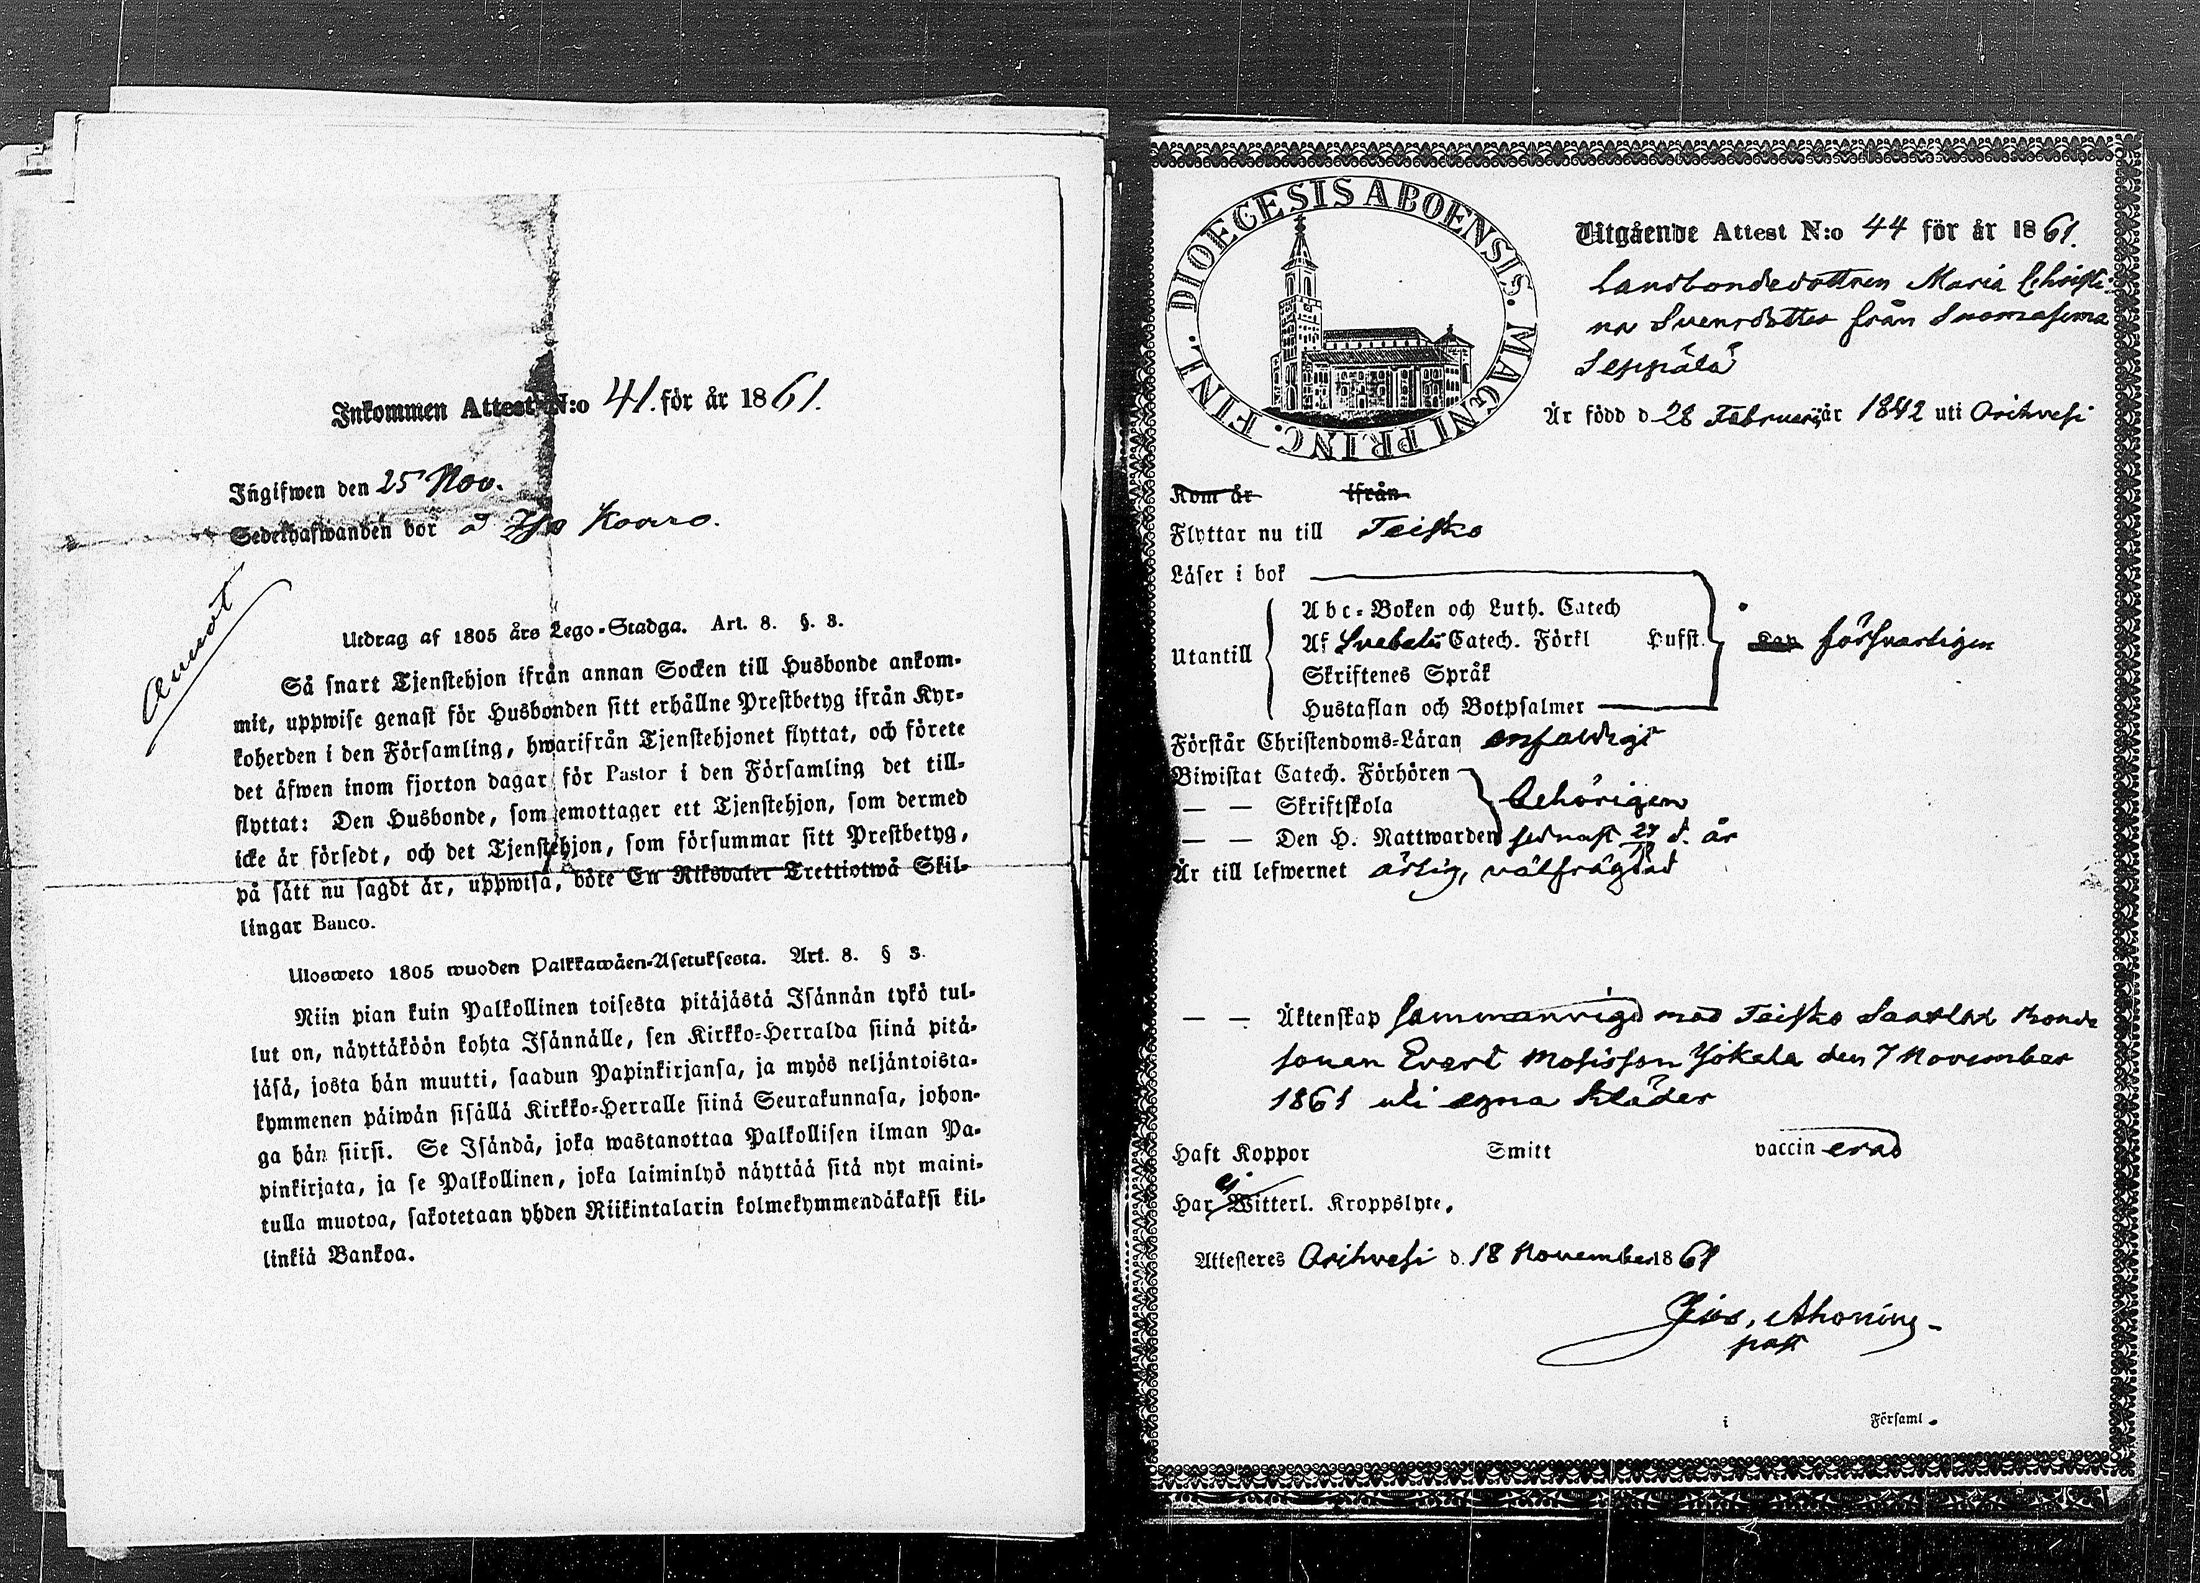 Inkommen Attest N:o 41. för år 1861.
Ingifwen den 25 Nov.
Sedelhafwanden bor å Iso Kovero.
Utdrag af 1805 års Lego-Stadga. Art. 8. §. 3.
Så snart Tjenstehjon ifrån annan Socken till Husbonde ankom-
mit, uppwise genast för Husbonden sitt erhållne Prestbetyg ifrån Kyr-
koherden i den Församling, hwarifrån Tjenstehjonet flyttat, och förete
det äfwen inom fjorton dagar för Pastor i den Församling det till-
flyttat: Den Husbonde, som emottager ett Tjenstehjon, som dermed
icke är försedt, och det Tjenstehjon, som försummar sitt Prestbetyg,
på sätt nu sagdt är, uppwisa, böte En Riksdaler Trettiotwå Skil-
lingar Banco.
Ulosweto 1805 wuoden Palkkawäen-Asetuksesta. Art. 8. § 3.
Niin pian kuin Palkollinen toisesta pitäjästä Isännän tykö tul-
lut on, näyttäköön kohta Isännälle, sen Kirkko-Herralda siinä pitä-
jäsä, josta hän muutti, saadun Papinkirjansa, ja myös neljäntoista-
kymmenen päiwän sisällä Kirkko-Herralle siinä Seurakunnasa, johon-
ga hän siirsi. Se Isändä, joka wastanottaa Palkollisen ilman Pa-
pinkirjata, ja se Palkollinen, joka laiminlyö näyttää sitä nyt maini-
tulla muotoa, sakotetaan yhden Riikintalarin kolmekymmendäkaksi kil-
linkiä Bankoa.
DIOECESIS ABOENSIS. MAGNI PRINC. FINL.
Utgående Attest N:o 44 för år 1861.
Landbondedottren Maria Christi-
na Svensdotter från Suomasema
Seppälä
Är född d. 28 Februari år 1842 uti Orihvesi
Kom år ifrån
Flyttar nu till Teisko
Läser i bok
Abc-Boken och Luth. Catech
Utantill Af Svebelii Catech. Förkl Hufst. Kap försvarligen
Skriftenes Språk
Hustaflan och Botpsalmer
Förstår Christendoms-Läran enfaldigt
Biwistat Catech. Förhören
— — Skriftskola behörigen
— — Den H. Nattwarden sednast d. år
Är till lefwernet ärlig, välfrägdad
— — Äktenskap sammanvigd med Teisko Bonde
sonen Evert Mosisson Yökala den 7 November
1861 uti egna kläder
Haft Koppor Smitt vaccinerad
Har ej Witterl. Kroppslyte.
Attesteres Orihvesi d. 18 November 1861
past
i Församl.